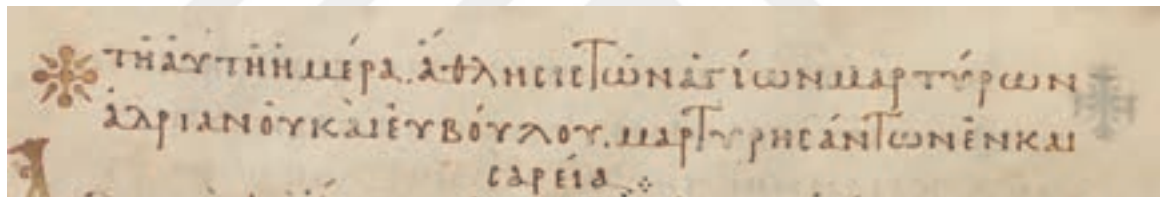 τῆ ἀυτῆ ἡμέρα. ἄθλησις τῶν ἁγίων μαρτύρων
ἀδριανοῦ καὶ ἐυβούλου. μαρτυρησάντων ἐν και
σαρεία